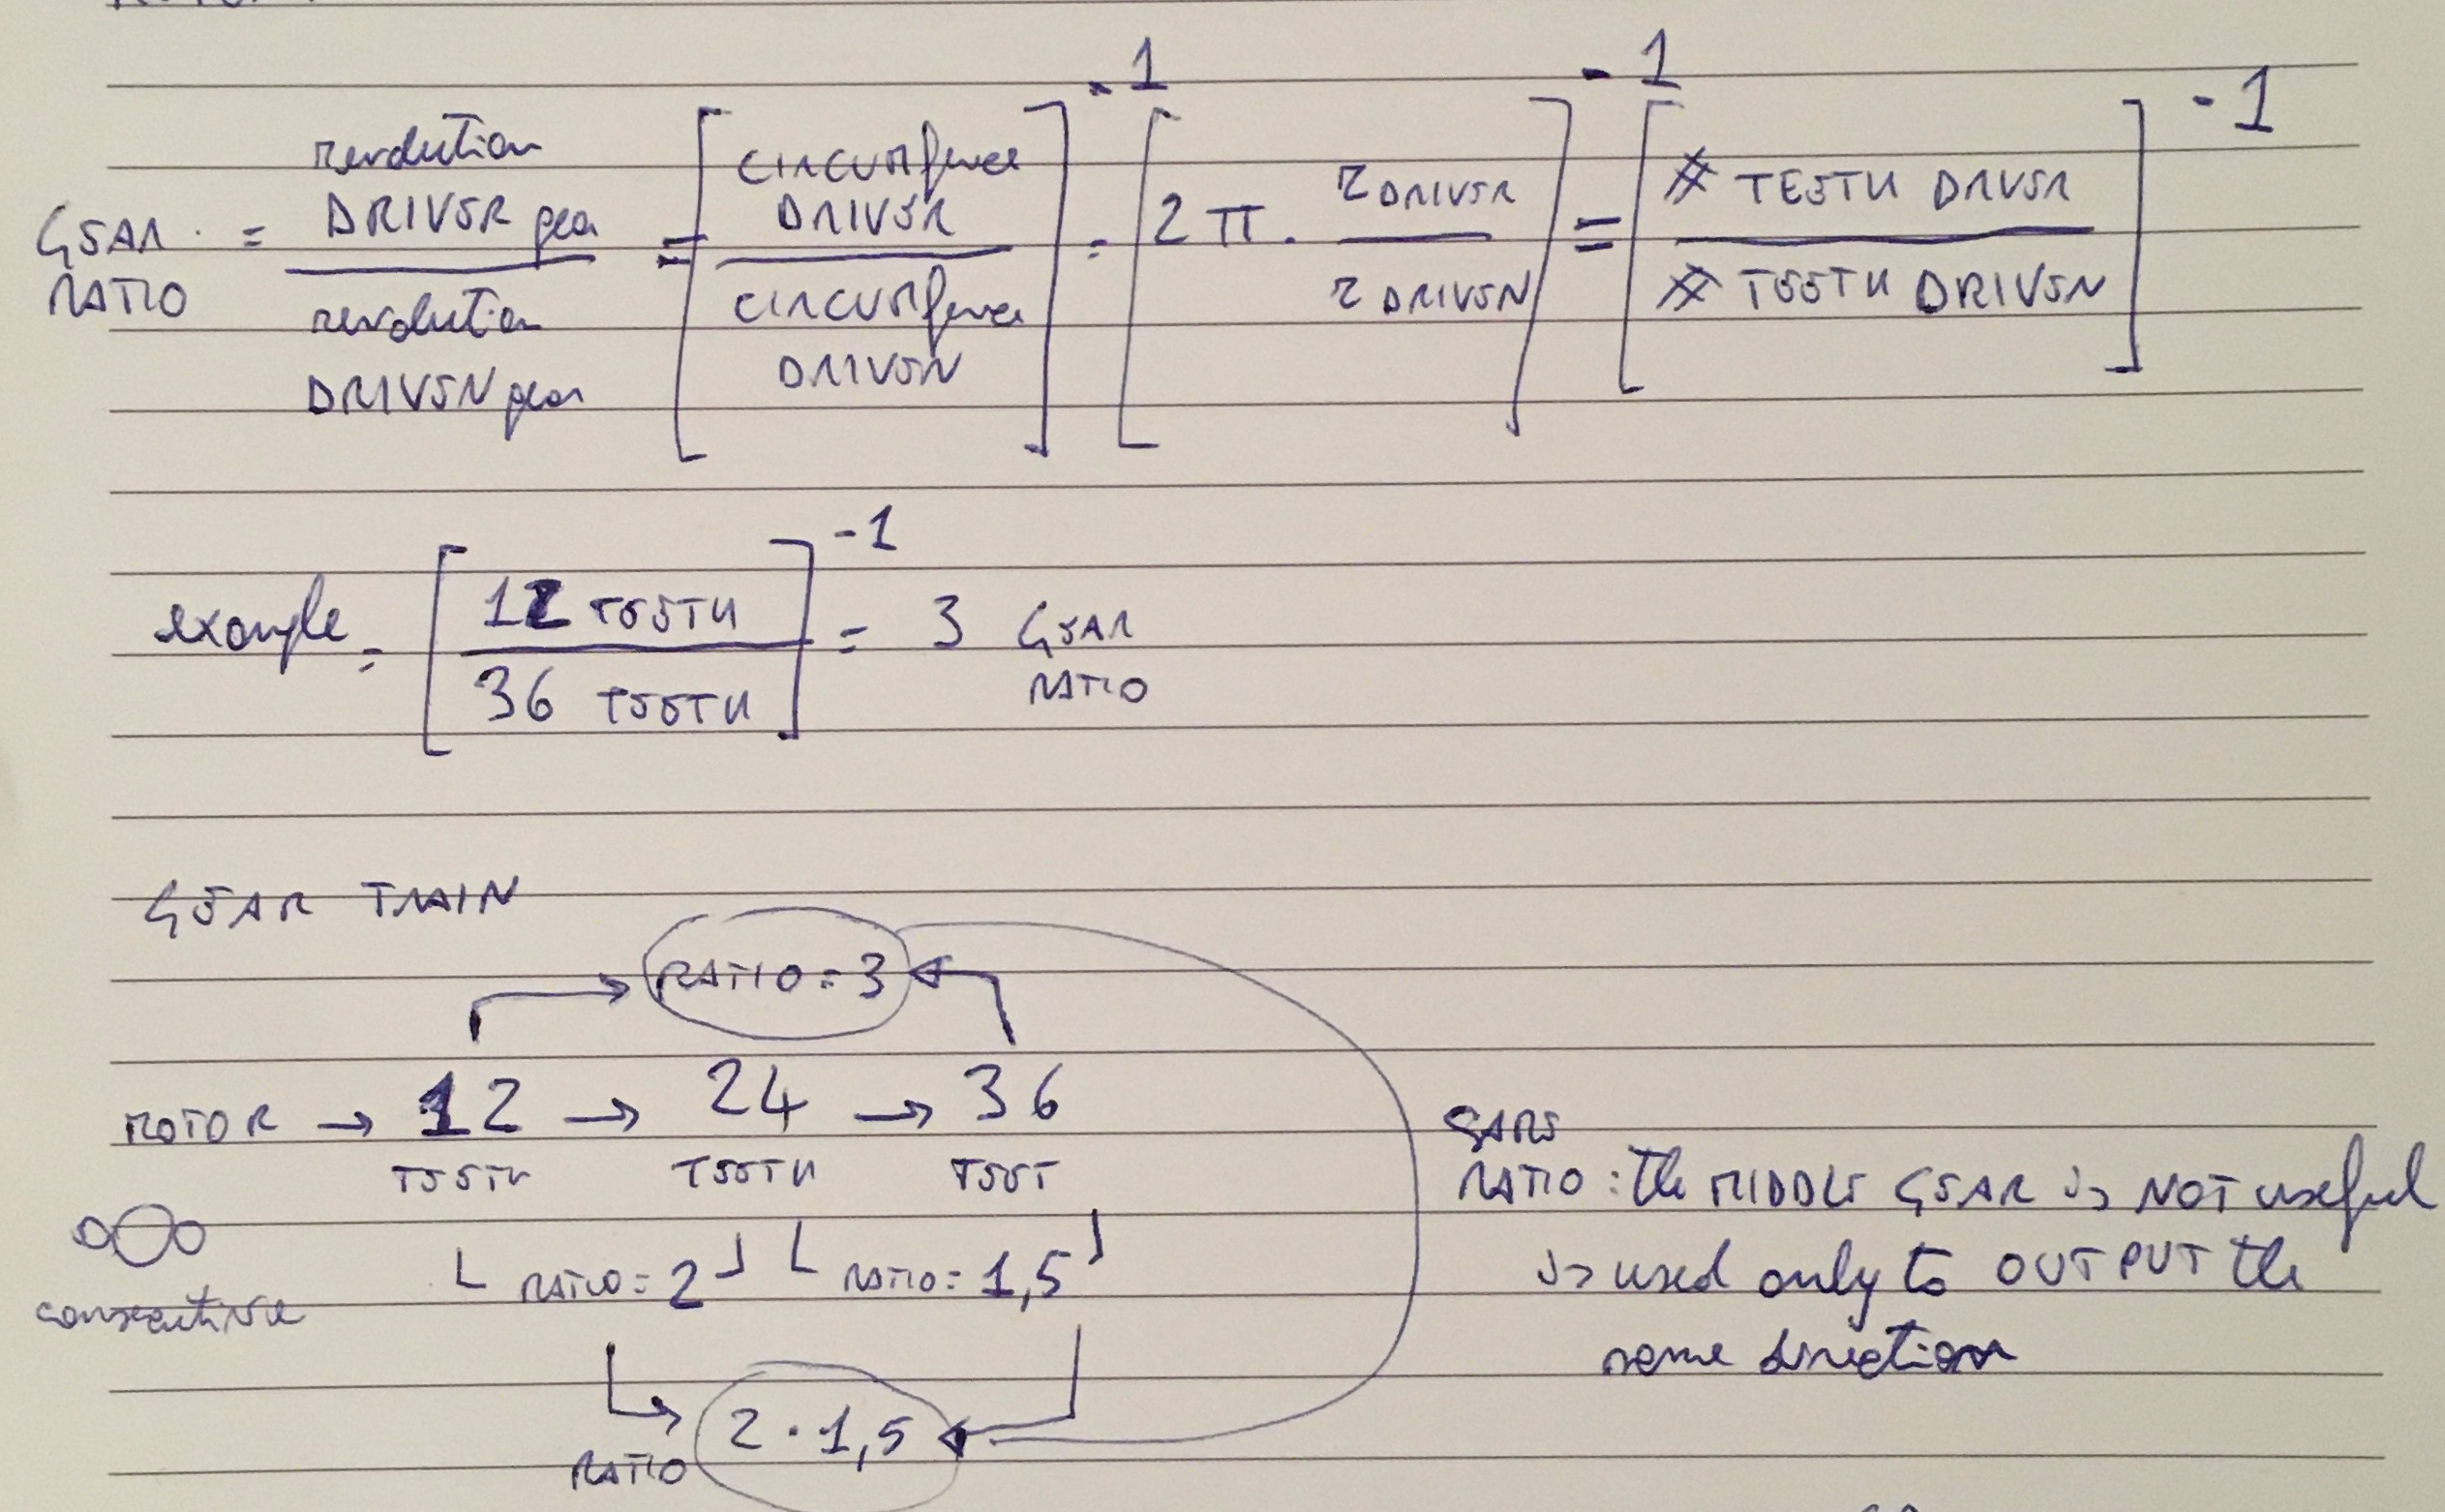 GEAR RATIO = revolution DRIVER gear / revolution DRIVEN gear = [circumference DRIVER / circumference DRIVEN]^-1 = [2π · r DRIVER / r DRIVEN]^-1 = [# TEETH DRIVER / # TEETH DRIVEN]^-1
example = [12 TEETH / 36 TEETH]^-1 = 3 GEAR RATIO
GEAR TRAIN
RATIO = 3
MOTOR → 12 → 24 → 36
TEETH TEETH TEET
consecutive
RATIO = 2 RATIO = 1,5
RATIO 2 · 1,5
RATIO: the MIDDLE GEAR is NOT useful
is used only to OUTPUT the
same direction